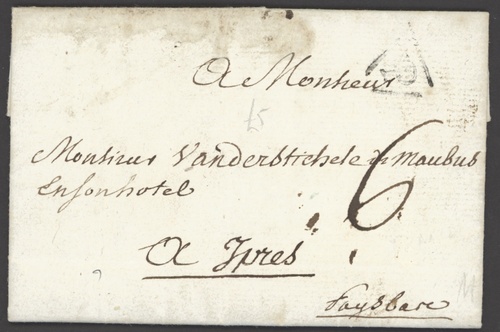 A Monsieur
Monsieur Vanderstichele de Maubus
Ensonhotel
6
A Ipres
Paysbas